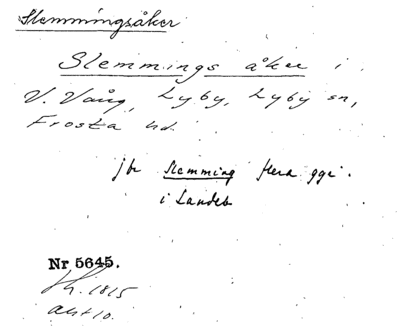 Slemmingsåker
Slemmings åker i
V. Vång, Lyby, Lyby sn,
Frosta hd.
jfr Slemming flera ggr.
i Landeb
Nr 5645.
Sk. 1815
akt 10.